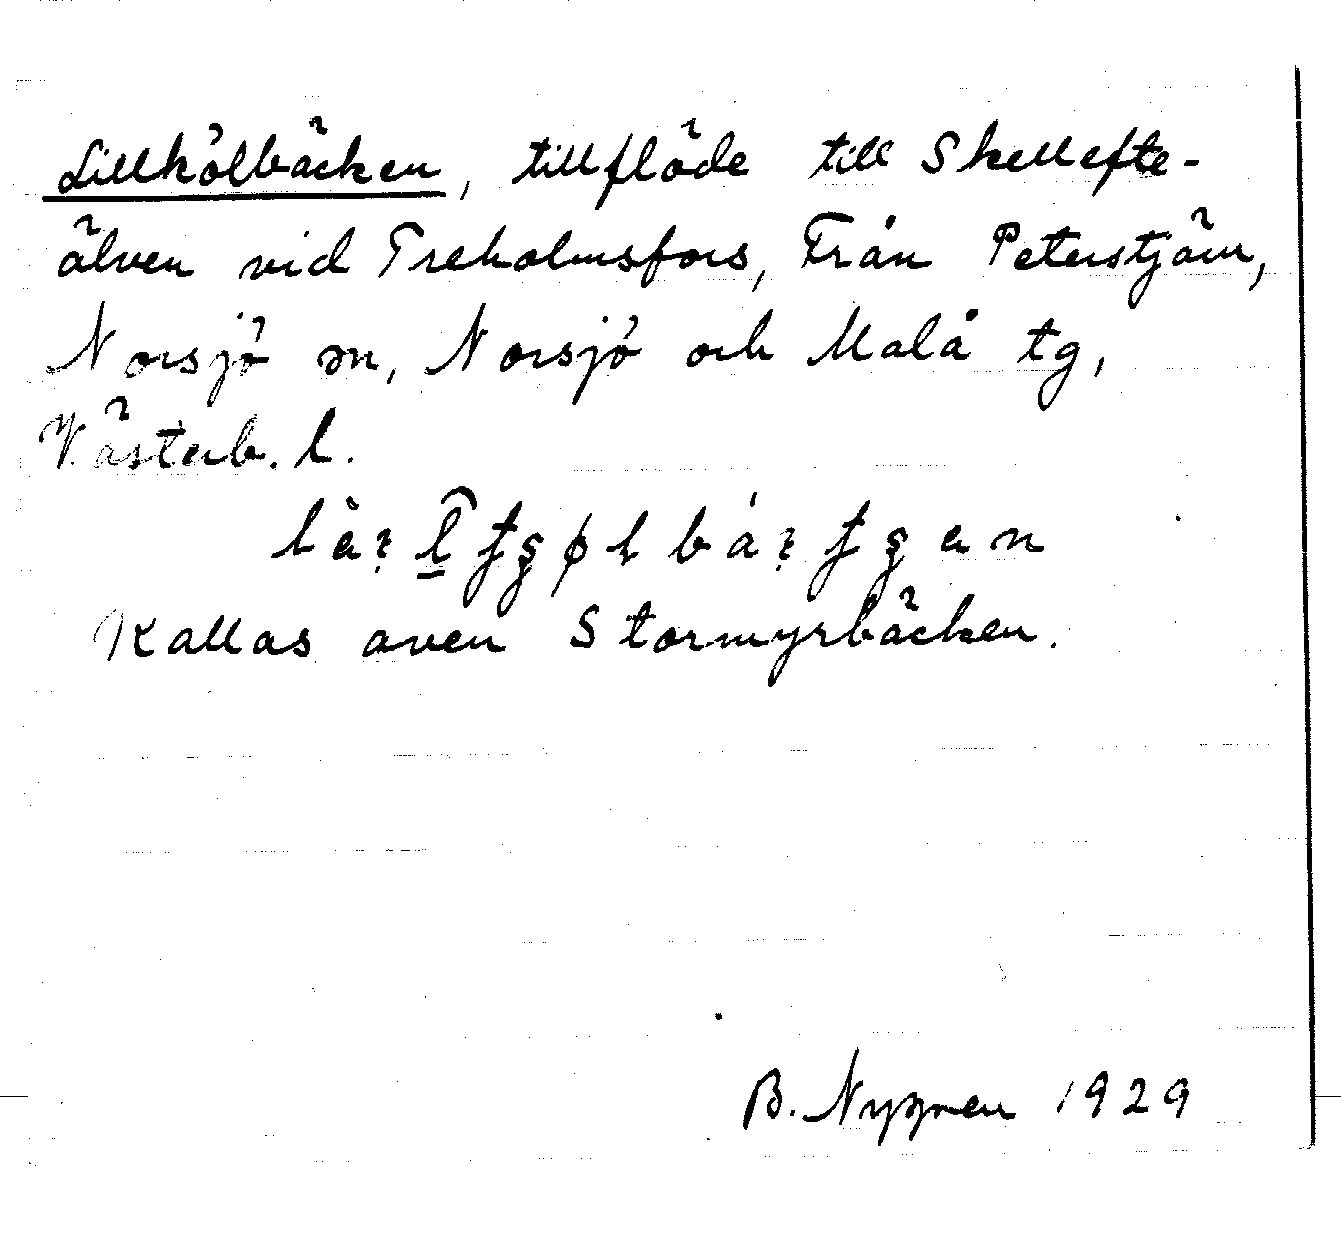 Lillkölbäcken, tillflöde till Skellefte-
älven vid Treholmsfors, Från Peterstjärn,
Norsjö sn, Norsjö och Malå tg,
Västerb. l.
Kallas även Stormyrbäcken.
B. Nygren 1929